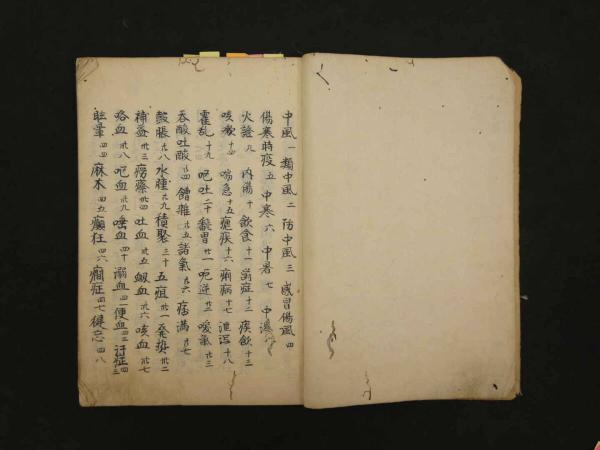 中風 一 類中風 二 防中風 三 感冒傷風 四
傷寒時疫 五 中寒 六 中暑 七 中濕
火證 九 內傷 十 飲食 十一 消症 十二 痰飲 十三
咳嗽 十四 喘急 十五 瘧疾 十六 痢病 十七 泄瀉 十八
霍乱 十九 呃吐 二十 翻胃 廿一 呃逆 廿二 噯氣 廿三
吞酸吐酸 廿四 嘈雜 廿五 諸氣 廿六 痞滿 廿七
鼓脹 廿八 水腫 廿九 積聚 三十 五疸 卅一 發熱 卅二
補益 卅三 癆瘵 卅四 吐血 卅五 衂血 卅六 咳血 卅七
咯血 卅八 呃血 卅九 唾血 四十 溺血 四一 便血 四二 汗症 四三
眩暈 四四 麻木 四五 癲狂 四六 癎症 四七 健忘 四八